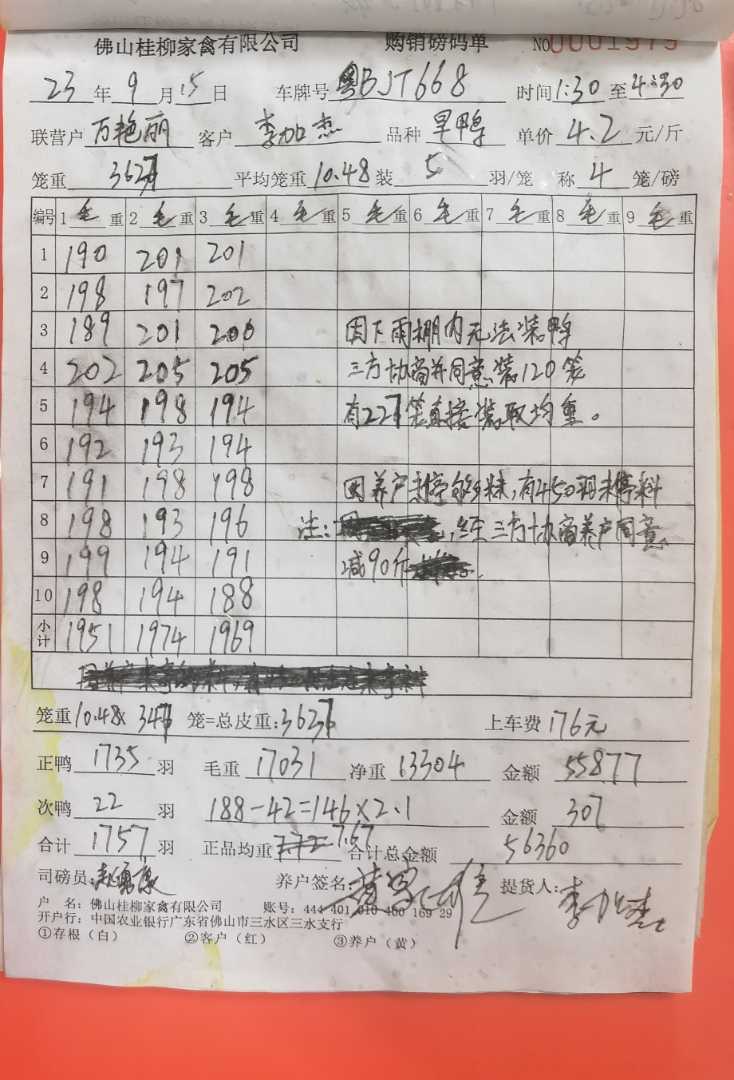 佛山桂柳家禽有限公司 购销磅码单 NO0001979
23年9月15日 车牌号粤BJT668 时间1:30至4:30
联营户万艳丽 客户李加杰 品种旱鸭 单价4.2元/斤
笼重 平均笼重10.48装5羽/笼 称4笼/磅
编号 1毛重 2毛重 3毛重 4毛重 5毛重 6毛重 7毛重 8毛重 9毛重
1 190 201 201
2 198 197 202
3 189 201 200 因下雨棚内无法装鸭
4 202 205 205 三方协商并同意装120笼
5 194 198 194 有227笼直接装取均重。
6 192 193 194
7 191 198 198 因养户未停够料,有450羽未停料
8 198 193 196 注: ,经三方协商养户同意
9 199 194 191 减90斤
10 198 194 188
小计 1951 1974 1969
笼重10.48x 347 笼=总皮重:3637 上车费176元
正鸭1735羽 毛重17031 净重13304 金额55877
次鸭22羽 188-42=146×2.1 金额307
合计1757羽 正品均重7.67 合计总金额56360
司磅员: 养户签名: 提货人:李加杰
户 名:佛山桂柳家禽有限公司 账号:444 401 010 400 169 29
开户行:中国农业银行广东省佛山市三水区三水支行
①存根(白) ②客户(红) ③养户(黄)